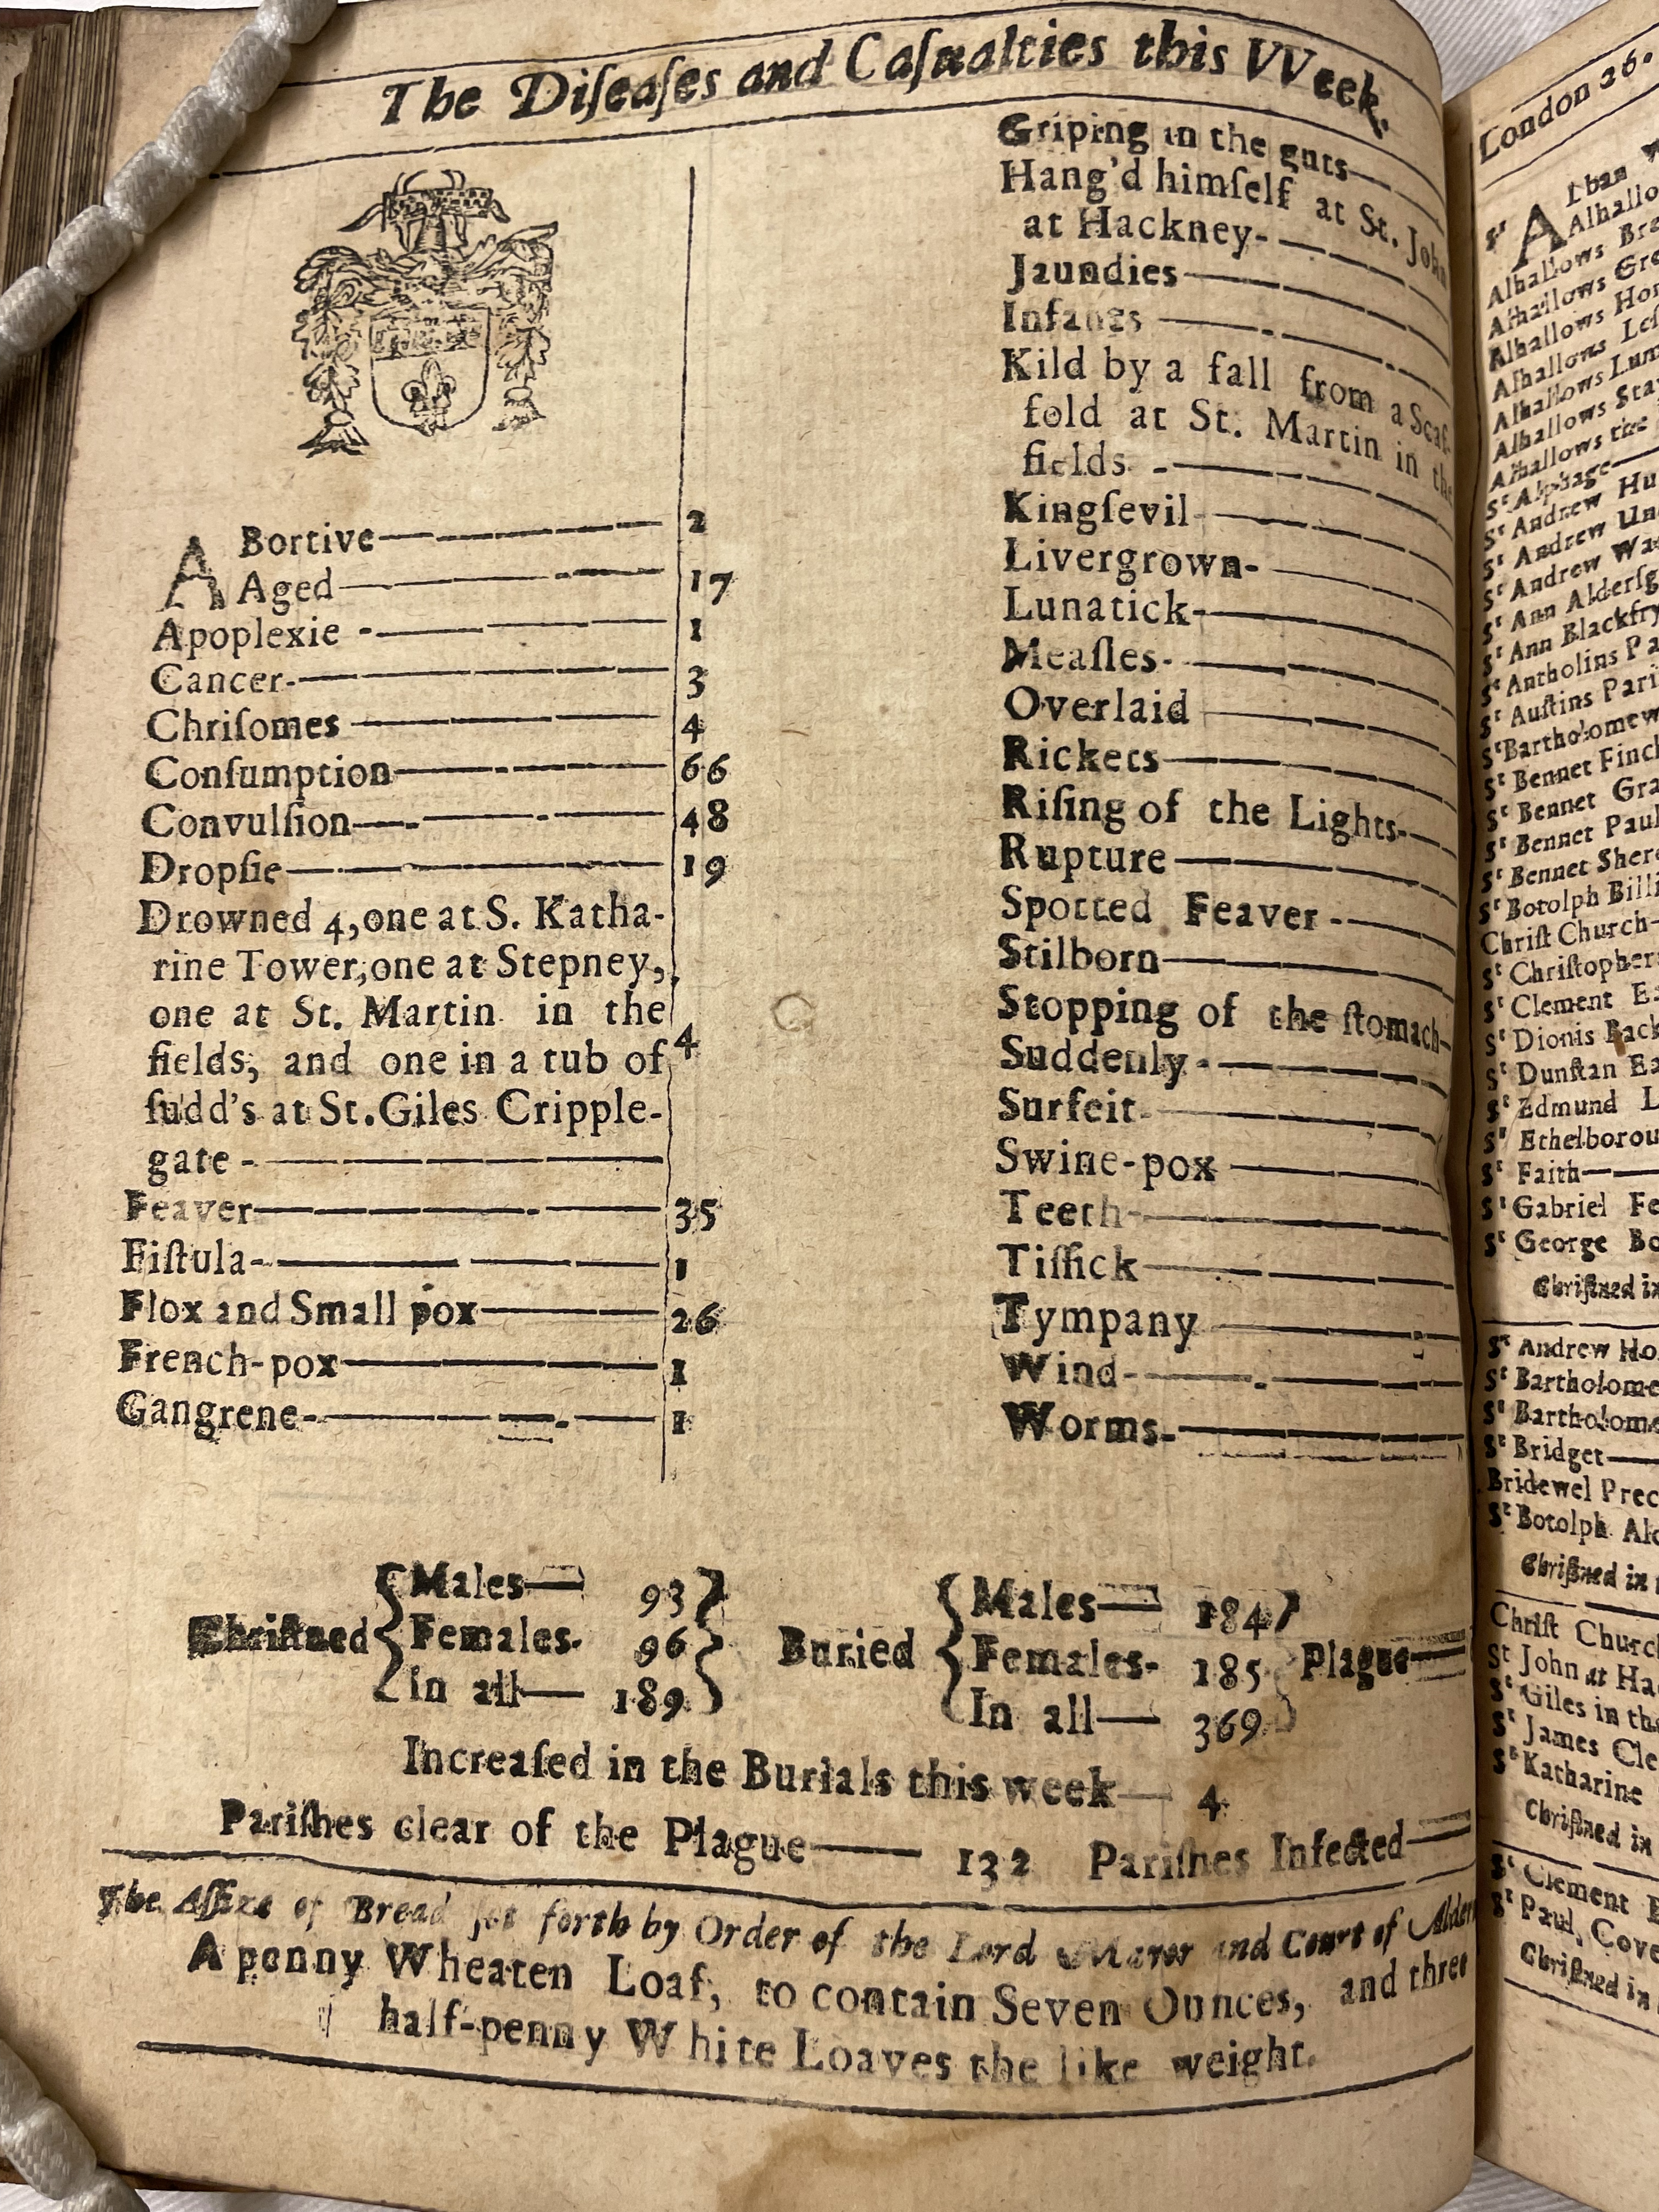 The Diſeaſes and Caſualties this VVeek.
ABortive 2
Aged 17
Apoplexie 1
Cancer 3
Chriſomes 4
Conſumption 66
Convulſion 48
Dropſie 19
Drowned 4, one at S. Katha-
rine Tower, one at Stepney,
one at St. Martin in the
fields, and one in a tub of 4
ſudd's at St. Giles Cripple-
gate
Feaver 35
Fiſtula 1
Flox and Small pox 26
French-pox 1
Gangrene 1
Griping in the guts
Hang'd himſelf at St. John
at Hackney
Jaundies
Infants
Kild by a fall from a Scaf-
fold at St. Martin in the
fields
Kingſevil
Livergrown
Lunatick
Meaſles
Overlaid
Rickets
Riſing of the Lights
Rupture
Spotted Feaver
Stilborn
Stopping of the ſtomach
Suddenly
Surfeit
Swine-pox
Teeth
Tiſſick
Tympany
Wind
Worms
Chriſtned Males 93
Females 96
In all 189
Buried Males 184
Females 185 Plague
In all 369
Increaſed in the Burials this week 4
Pariſhes clear of the Plague 132 Pariſhes Infected
The Aſſize of Bread ſet forth by Order of the Lord Maror and Court of Alder
A penny Wheaten Loaf, to contain Seven Ounces, and three
half-penny White Loaves the like weight.
London 26.
Alhallows
Alhallows
Alhallows
Alhallows
Alhallows
Alhallows
Alhallows the
St Alphage
St Andrew
St Andrew
St Andrew
St Ann
St Ann
St Antholins
St Auſtins
St Bartholomew
St Bennet Finch
St Bennet
St Bennet
St Bennet
St Botolph
Chriſt Church
St Chriſtopher
St Clement
St Dionis
St Dunſtan
St Edmund
St
St Faith
St Gabriel
St George
Chriſtned in
St Andrew
St
St
St Bridget
Bridewel
St Botolph
Chriſtned in
Chriſt Church
St John at
St Giles in the
St James
St Katharine
Chriſtned in
St Clement
St Paul,
Chriſtned in